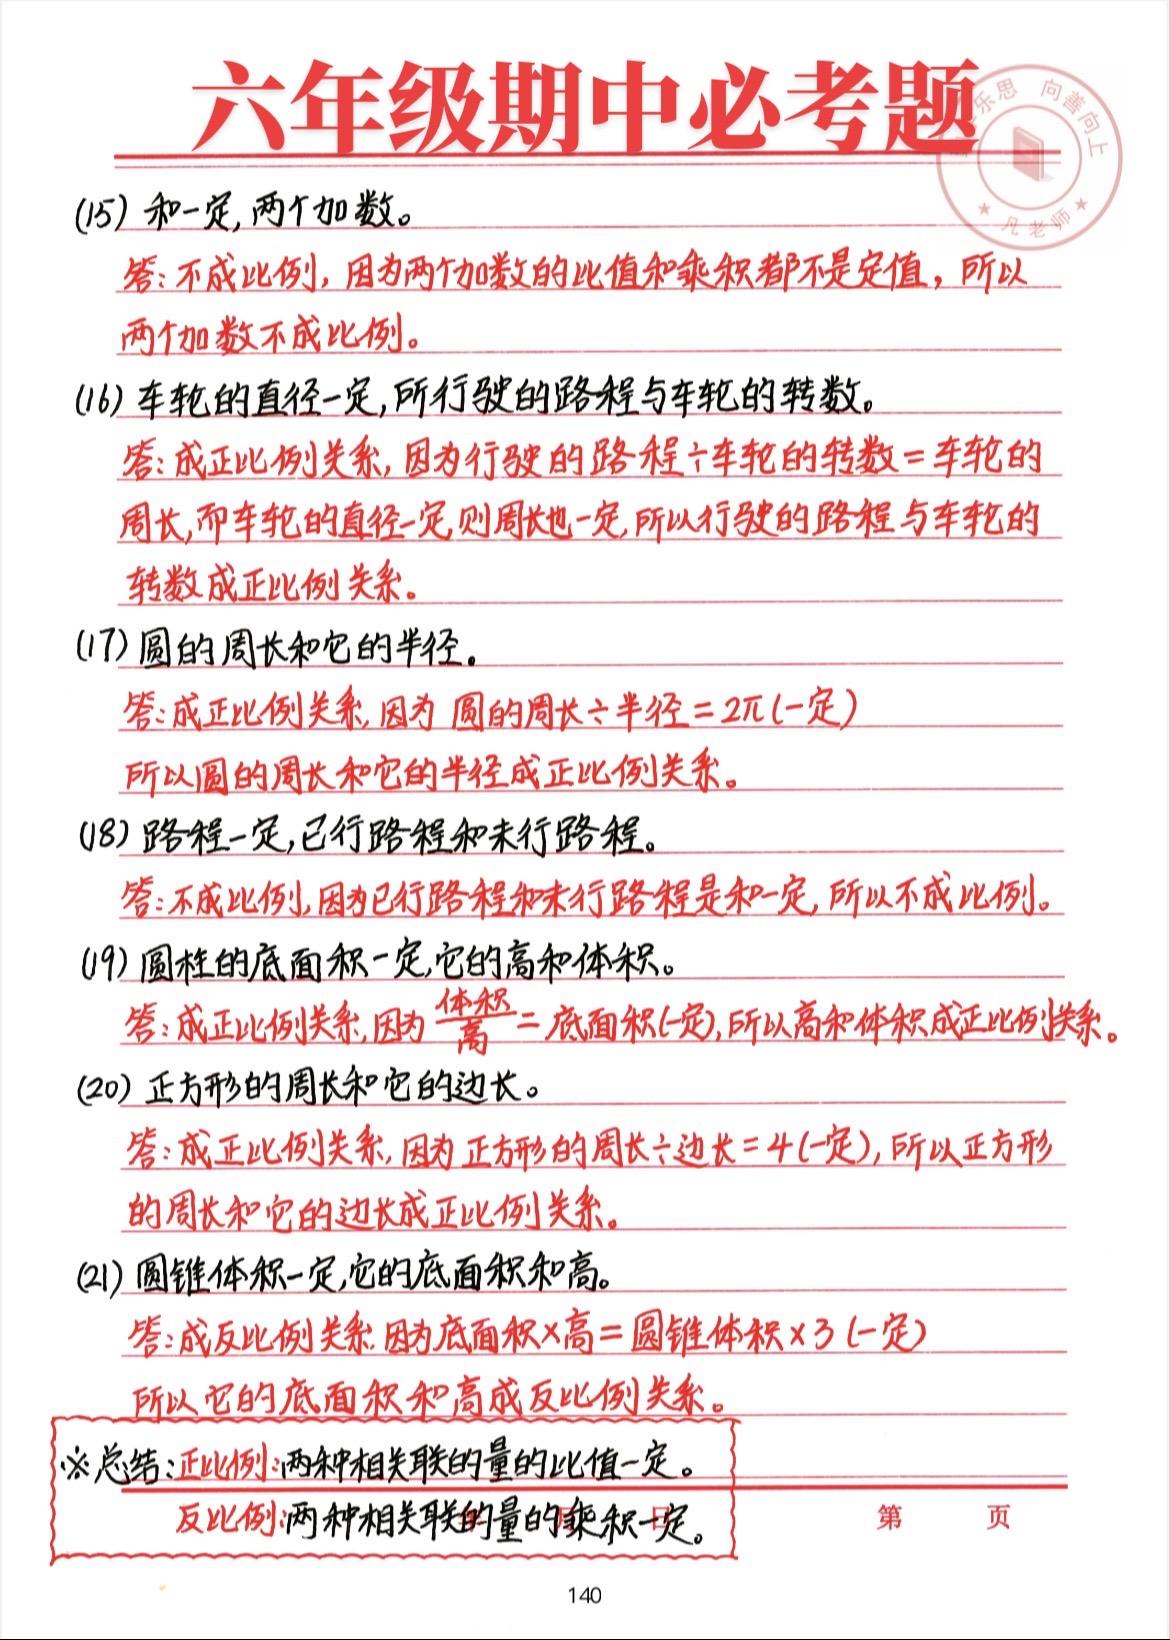 六年级期中必考题
乐思 向善向上
凡老师
(15) 和一定,两个加数。
答:不成比例,因为两个加数的比值和乘积都不是定值,所以
两个加数不成比例。
(16) 车轮的直径一定,所行驶的路程与车轮的转数。
答:成正比例关系,因为行驶的路程÷车轮的转数=车轮的
周长,而车轮的直径一定,则周长也一定,所以行驶的路程与车轮的
转数成正比例关系。
(17) 圆的周长和它的半径。
答:成正比例关系,因为 圆的周长÷半径=2π(一定)
所以圆的周长和它的半径成正比例关系。
(18) 路程一定,已行路程和未行路程。
答:不成比例,因为已行路程和未行路程是和一定,所以不成比例。
(19) 圆柱的底面积一定,它的高和体积。
答:成正比例关系,因为 体积/高 = 底面积(一定),所以高和体积成正比例关系。
(20) 正方形的周长和它的边长。
答:成正比例关系,因为正方形的周长÷边长=4(一定),所以正方形
的周长和它的边长成正比例关系。
(21) 圆锥体积一定,它的底面积和高。
答:成反比例关系.因为底面积×高=圆锥体积×3(一定)
所以它的底面积和高成反比例关系。
※总结:正比例:两种相关联的量的比值一定。
反比例:两种相关联的量的乘积一定。
第 页
140